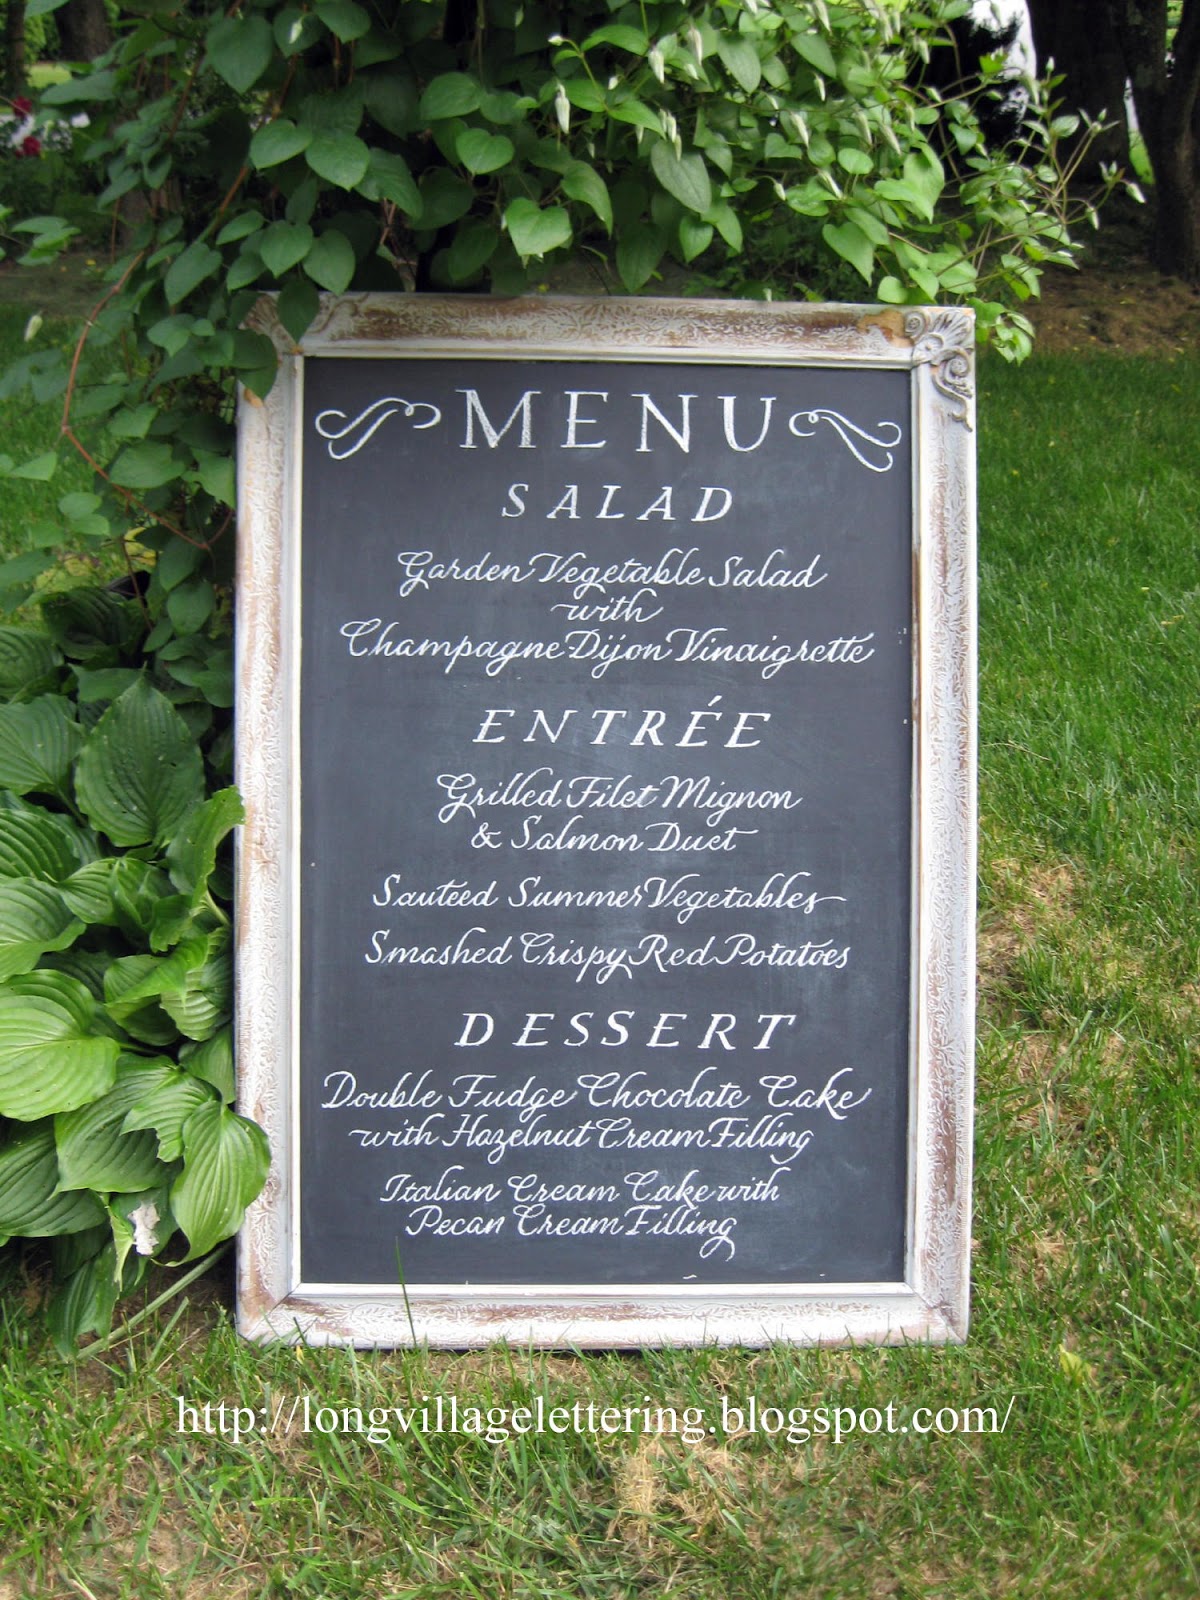 MENU
SALAD
Garden Vegetable Salad
with
Champagne Dijon Vinaigrette
ENTRÉE
Grilled Filet Mignon
& Salmon Duet
Sauteed Summer Vegetables
Smashed Crispy Red Potatoes
DESSERT
Double Fudge Chocolate Cake
with Hazelnut Cream Filling
Italian Cream Cake with
Pecan Cream Filling
http://longvillagelettering.blogspot.com/